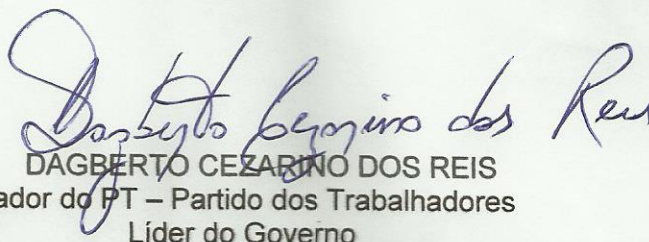 Dagberto Cezarino dos Reis
DAGBERTO CEZARINO DOS REIS
ador do PT – Partido dos Trabalhadores
Líder do Governo